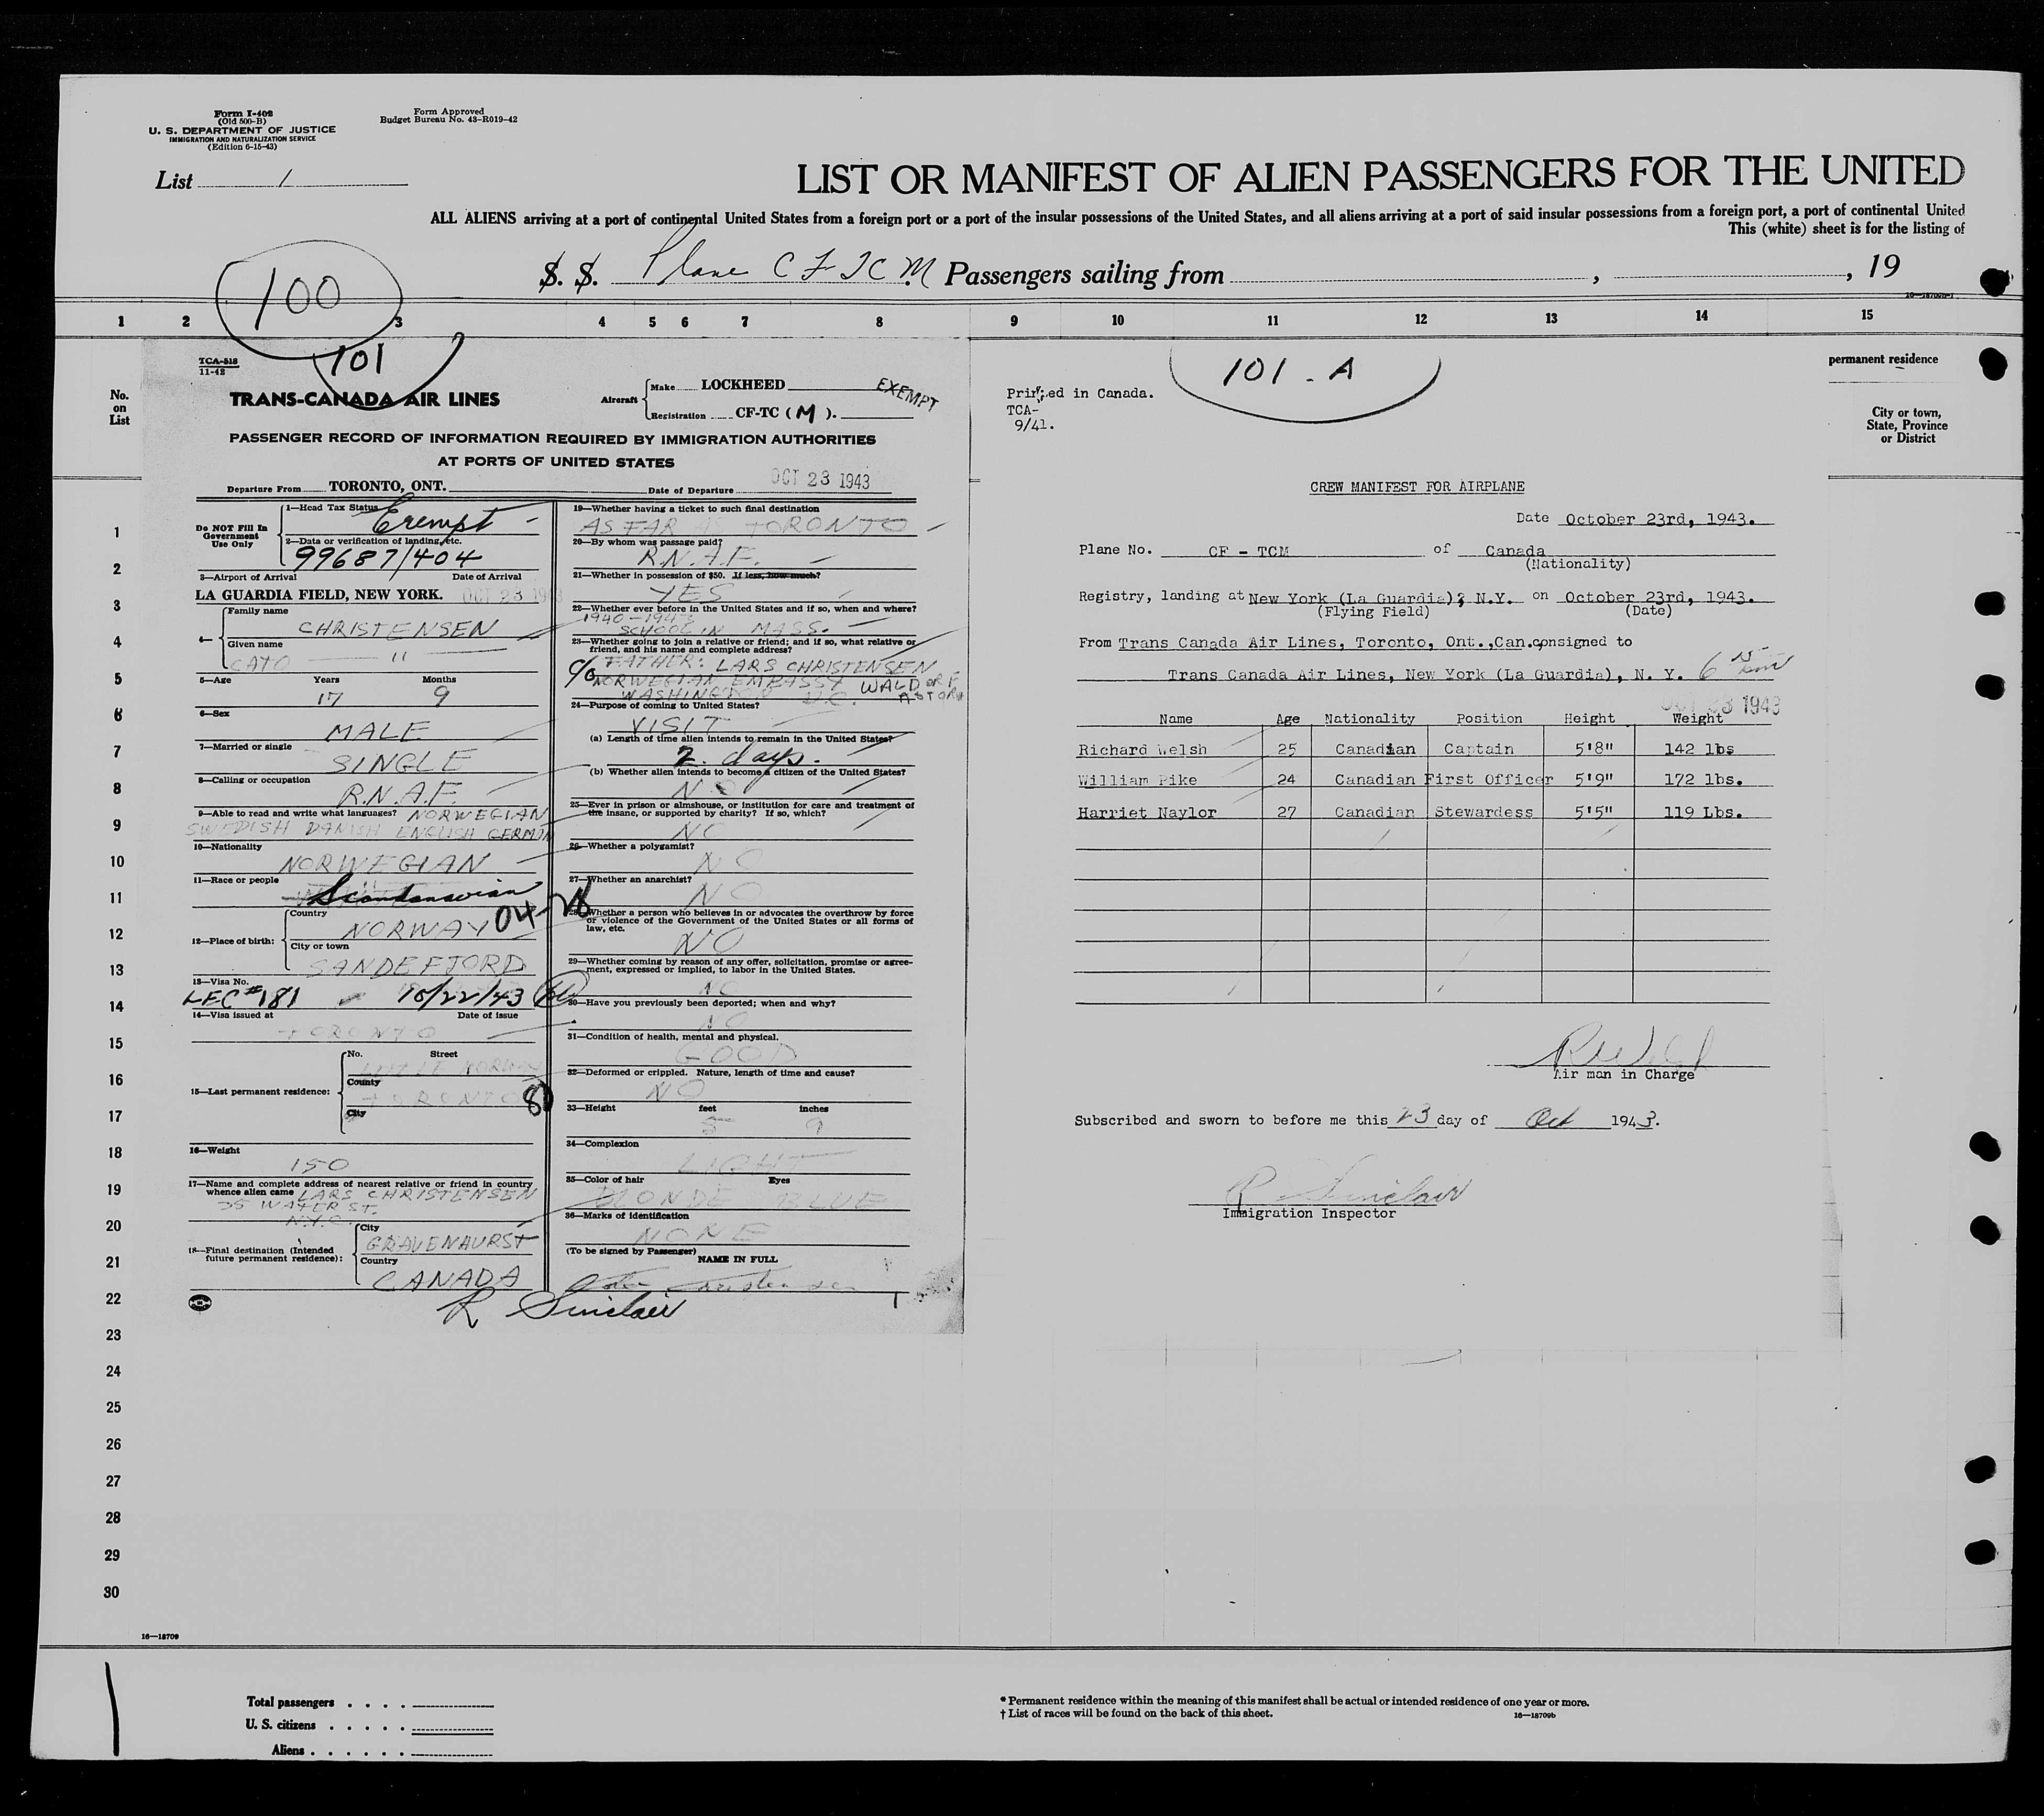 Form I-402
(Old 500-B)
U. S. DEPARTMENT OF JUSTICE
IMMIGRATION AND NATURALIZATION SERVICE
(Edition 6-15-43)
Form Approved
Budget Bureau No. 43-R019-42
List 1
LIST OR MANIFEST OF ALIEN PASSENGERS FOR THE UNITED
ALL ALIENS arriving at a port of continental United States from a foreign port or a port of the insular possessions of the United States, and all aliens arriving at a port of said insular possessions from a foreign port, a port of continental United
This (white) sheet is for the listing of
S. S. Plane CF TCM Passengers sailing from , , 19
100
1 2 3 4 5 6 7 8 9 10 11 12 13 14 15
No.
on
List
TCA-518
11-42
101
TRANS-CANADA AIR LINES
Aircraft
Make LOCKHEED
Registration CF-TC (M).
EXEMPT
PASSENGER RECORD OF INFORMATION REQUIRED BY IMMIGRATION AUTHORITIES
AT PORTS OF UNITED STATES
Departure From TORONTO, ONT. Date of Departure OCT 23 1943
Do NOT Fill In
Government
Use Only
1—Head Tax Status
Exempt
2—Data or verification of landing, etc.
99687/404
3—Airport of Arrival Date of Arrival
LA GUARDIA FIELD, NEW YORK. OCT 23 1943
4—
Family name
CHRISTENSEN
Given name
CATO "
5—Age Years Months
17 9
6—Sex
MALE
7—Married or single
SINGLE
8—Calling or occupation
R.N.A.F.
9—Able to read and write what languages? NORWEGIAN
SWEDISH DANISH ENGLISH GERMAN
10—Nationality
NORWEGIAN
11—Race or people
Scandanavian
12—Place of birth:
Country
NORWAY 04-28
City or town
SANDEFJORD
13—Visa No.
LEC #181 10/22/43
14—Visa issued at Date of issue
TORONTO
15—Last permanent residence:
No. Street
LITTLE NORWAY
County
TORONTO
City
16—Weight
150
17—Name and complete address of nearest relative or friend in country
whence alien came LARS CHRISTENSEN
35 WATER ST.
N.Y.C.
18—Final destination (Intended
future permanent residence):
City
GRAVENHURST
Country
CANADA
19—Whether having a ticket to such final destination
AS FAR AS TORONTO
20—By whom was passage paid?
R.N.A.F.
21—Whether in possession of $50. If less, how much?
YES
22—Whether ever before in the United States and if so, when and where?
SCHOOL IN MASS.
23—Whether going to join a relative or friend; and if so, what relative or
friend, and his name and complete address?
c/o FATHER: LARS CHRISTENSEN
NORWEGIAN EMBASSY WALDORF
WASHINGTON D.C. ASTORIA
24—Purpose of coming to United States?
VISIT
(a) Length of time alien intends to remain in the United States?
2 days.
(b) Whether alien intends to become a citizen of the United States?
NO
25—Ever in prison or almshouse, or institution for care and treatment of
the insane, or supported by charity? If so, which?
NO
26—Whether a polygamist?
NO
27—Whether an anarchist?
NO
28—Whether a person who believes in or advocates the overthrow by force
or violence of the Government of the United States or all forms of
law, etc.
NO
29—Whether coming by reason of any offer, solicitation, promise or agree-
ment, expressed or implied, to labor in the United States.
NO
30—Have you previously been deported; when and why?
NO
31—Condition of health, mental and physical.
GOOD
32—Deformed or crippled. Nature, length of time and cause?
NO
33—Height feet inches
5 9
34—Complexion
LIGHT
35—Color of hair Eyes
BLONDE BLUE
36—Marks of identification
NONE
(To be signed by Passenger)
NAME IN FULL
Cato Christensen
R Sinclair
Printed in Canada.
TCA-
9/41.
101 - A
permanent residence
City or town,
State, Province
or District
CREW MANIFEST FOR AIRPLANE
Date October 23rd, 1943.
Plane No. CF - TCM of Canada
(Nationality)
Registry, landing at New York (La Guardia), N.Y. on October 23rd, 1943.
(Flying Field) (Date)
From Trans Canada Air Lines, Toronto, Ont.,Can. consigned to
Trans Canada Air Lines, New York (La Guardia), N. Y. 6 15 pm
OCT 23 1943
Name Age Nationality Position Height Weight
Richard Welsh 25 Canadian Captain 5'8" 142 lbs
William Pike 24 Canadian First Officer 5'9" 172 lbs.
Harriet Naylor 27 Canadian Stewardess 5'5" 119 Lbs.
Air man in Charge
Subscribed and sworn to before me this 23 day of Oct 1943.
R Sinclair
Immigration Inspector
1
2
3
4
5
6
7
8
9
10
11
12
13
14
15
16
17
18
19
20
21
22
23
24
25
26
27
28
29
30
16—18709
Total passengers
U. S. citizens
Aliens
* Permanent residence within the meaning of this manifest shall be actual or intended residence of one year or more.
† List of races will be found on the back of this sheet.
16—18709b